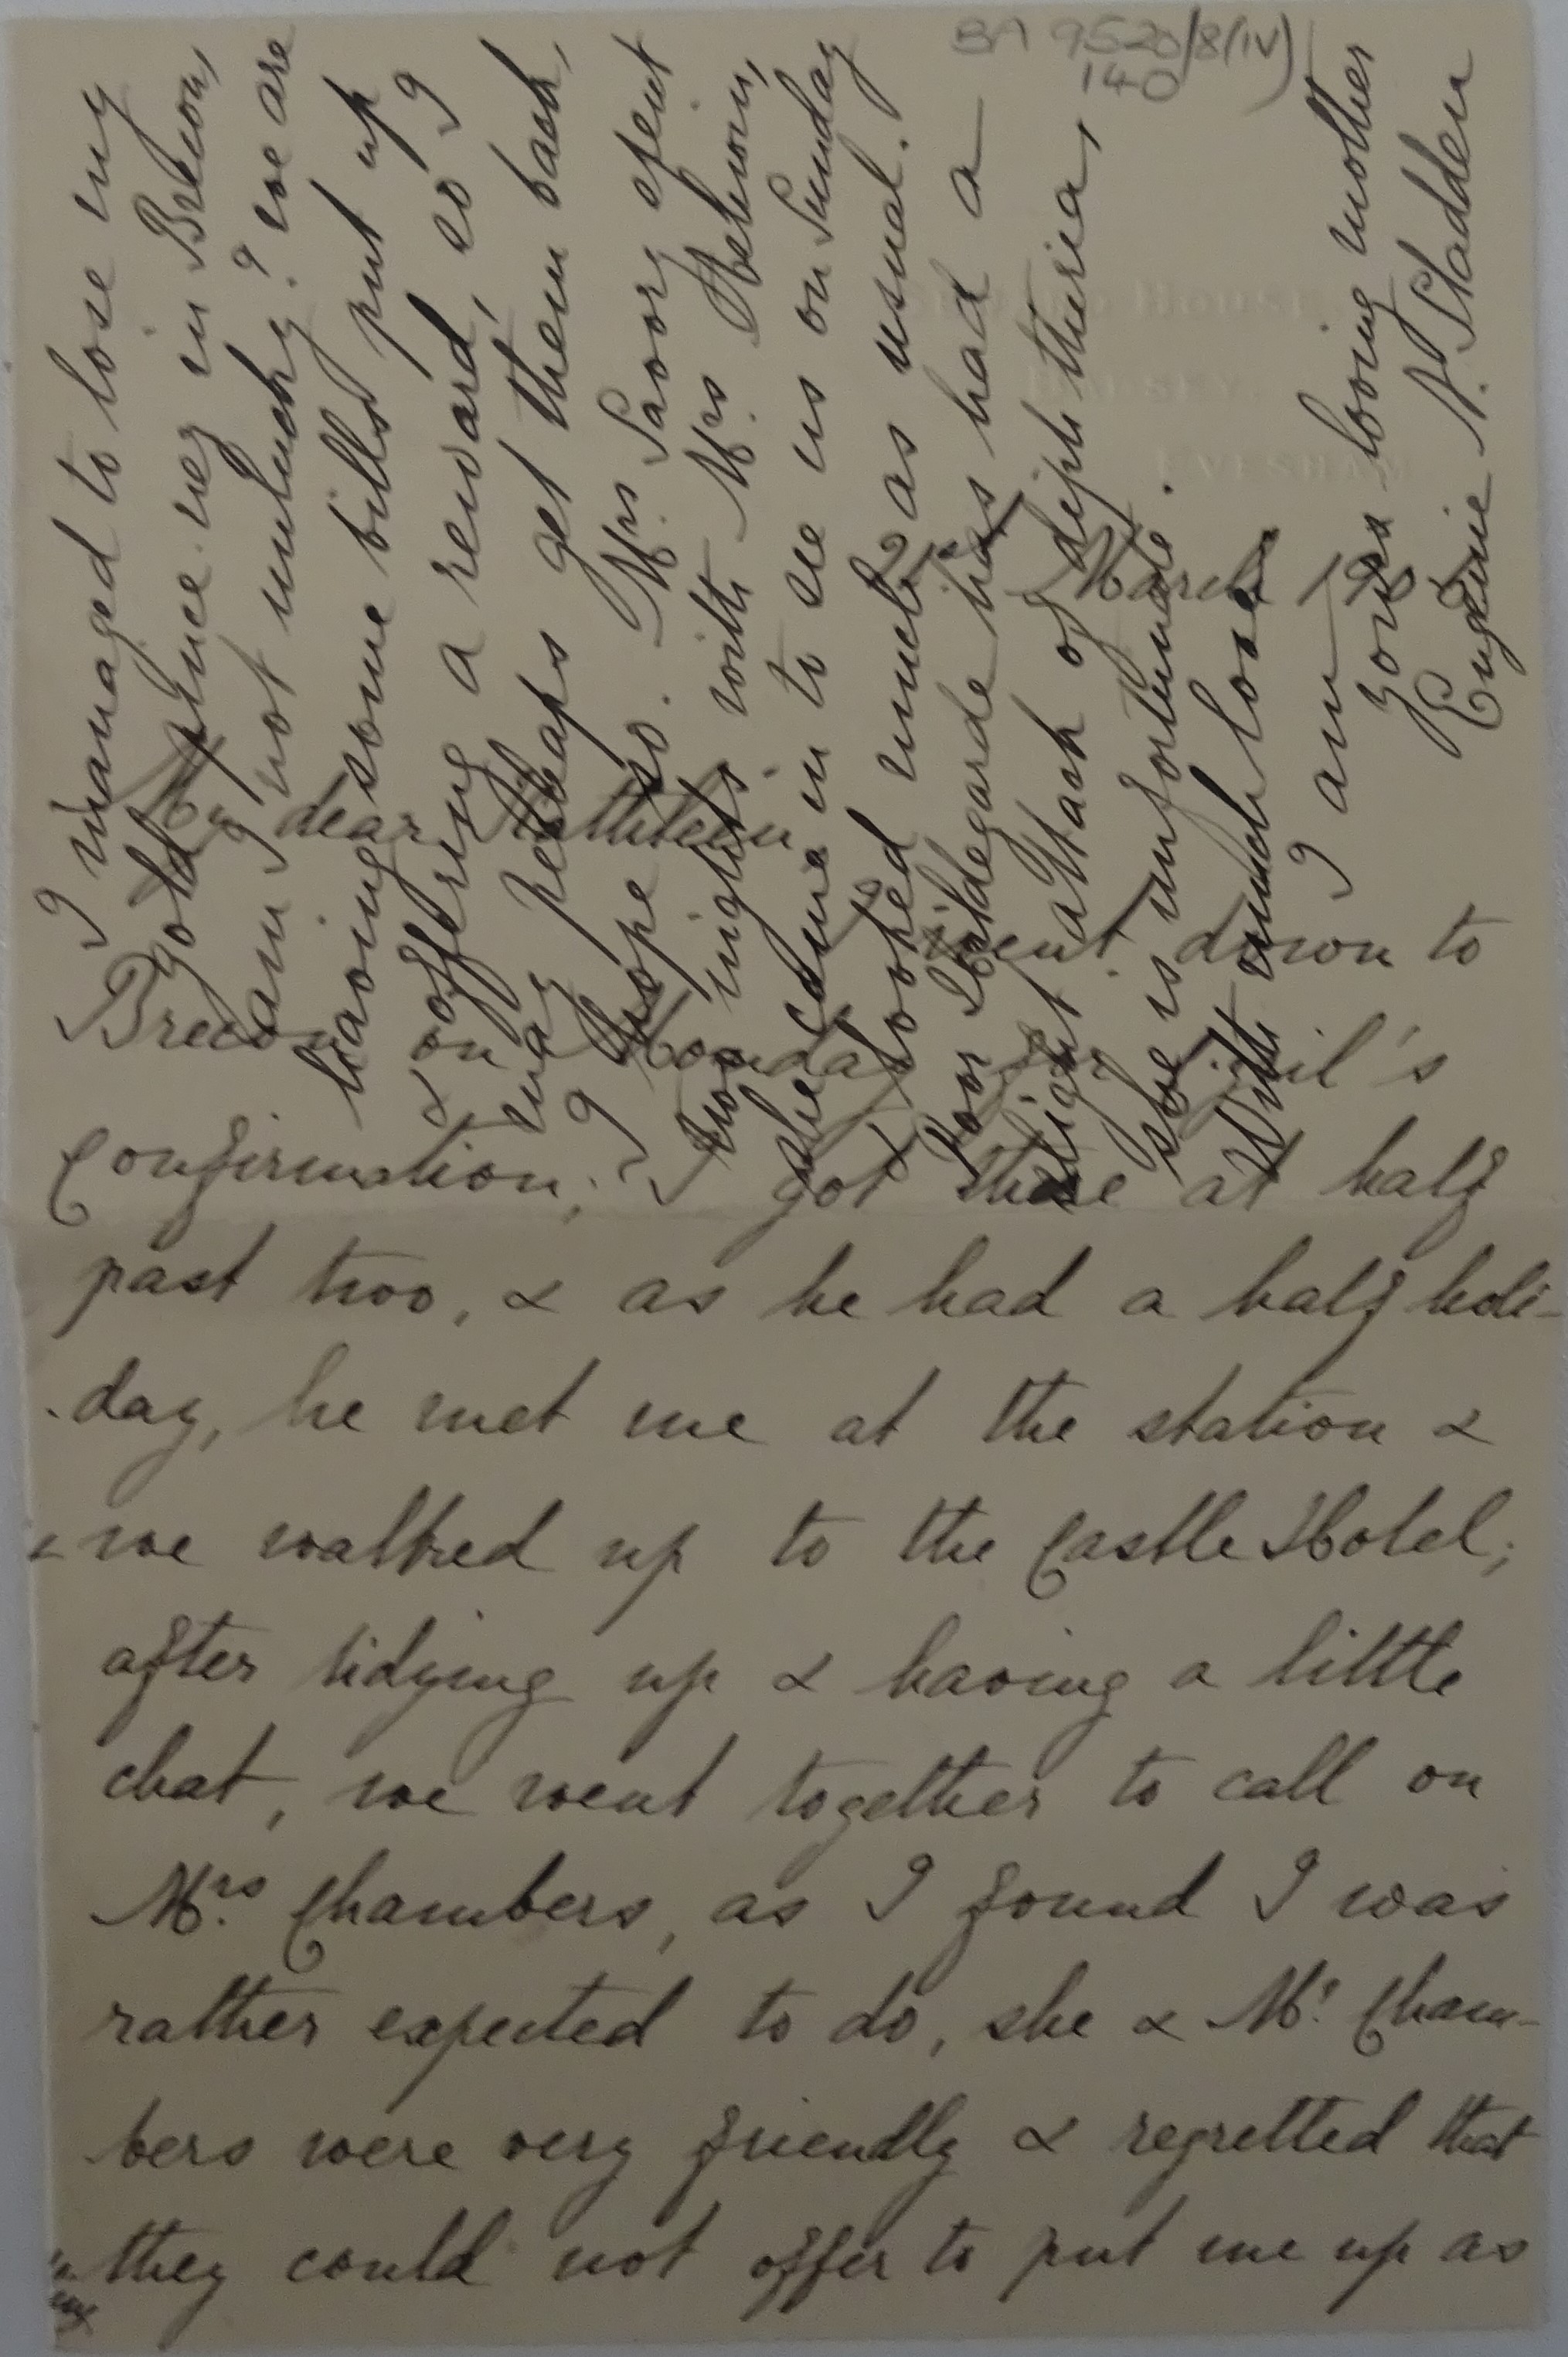 BA 9520/8(IV)
140
House
Evesham
March 190
My dear Kathleen
I went down to
Brecon on Monday for Vigil's
Confirmation; I got there at half
past two, & as he had a half holi-
day, he met me at the station &
we walked up to the Castle Hotel;
after tidying up & having a little
chat, we went together to call on
Mrs. Chambers, as I found I was
rather expected to do, she & Mr. Cham-
bers were very friendly & regretted that
they could not offer to put me up as
I managed to lose my
gold pince nez in Brecon,
am I not unlucky? we are
having some bills put up
& offering a reward, so I
may perhaps get them back,
I hope so. Mrs. Savory spent
two nights with Mrs.
she came in to see us on Sunday
& looked much as usual.
Poor Hildegarde has had a
slight attack of diphtheria,
she is unfortunate.
With much love
I am
your loving mother
Eugénie N. Sladden